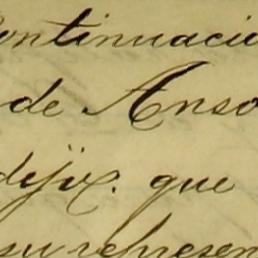 continuacio
de Anso
dijo. que
su represen